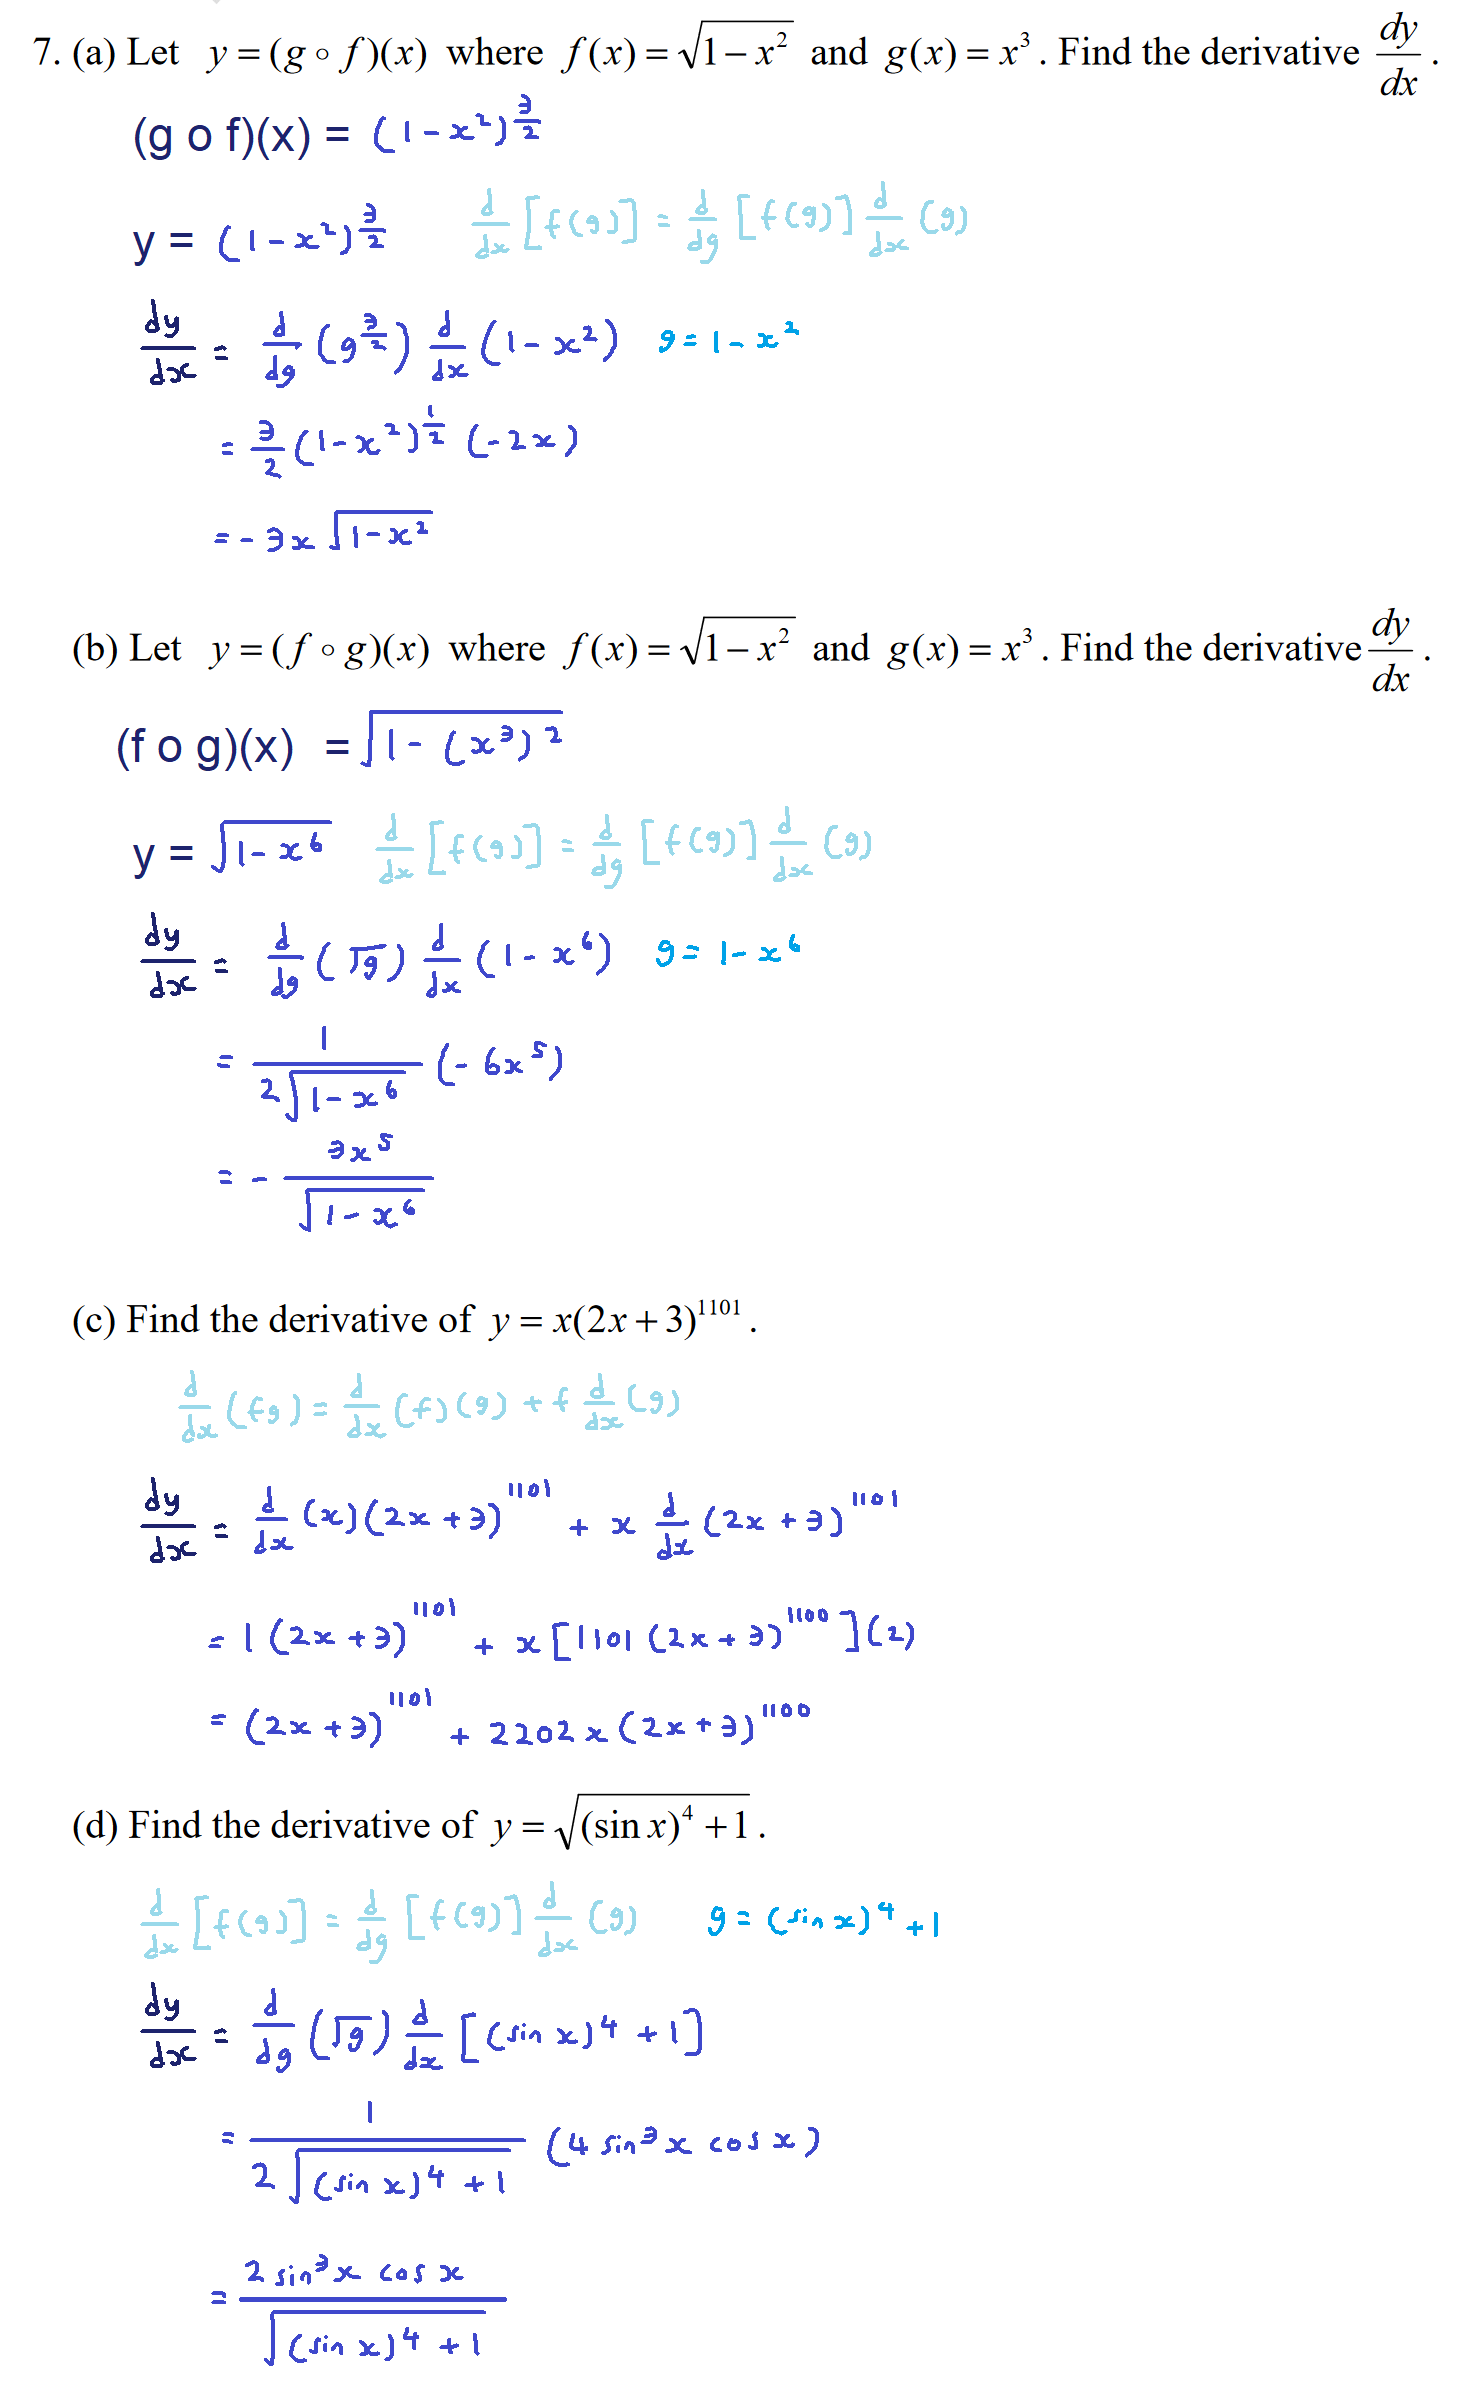 7. (a) Let y = (g ∘ f)(x) where f(x) = √(1 − x²) and g(x) = x³. Find the derivative dy/dx.
(g o f)(x) = (1 − x²)^(3/2)
y = (1 − x²)^(3/2) d/dx [f(g)] = d/dg [f(g)] d/dx (g)
dy/dx = d/dg (g^(3/2)) d/dx (1 − x²) g = 1 − x²
= 3/2 (1 − x²)^(1/2) (−2x)
= −3x √(1 − x²)
(b) Let y = (f ∘ g)(x) where f(x) = √(1 − x²) and g(x) = x³. Find the derivative dy/dx.
(f o g)(x) = √(1 − (x³)²)
y = √(1 − x⁶) d/dx [f(g)] = d/dg [f(g)] d/dx (g)
dy/dx = d/dg (√g) d/dx (1 − x⁶) g = 1 − x⁶
= 1/(2√(1 − x⁶)) (−6x⁵)
= − 3x⁵/√(1 − x⁶)
(c) Find the derivative of y = x(2x + 3)^1101.
d/dx (fg) = d/dx (f)(g) + f d/dx (g)
dy/dx = d/dx (x)(2x + 3)^1101 + x d/dx (2x + 3)^1101
= 1(2x + 3)^1101 + x[1101(2x + 3)^1100](2)
= (2x + 3)^1101 + 2202x(2x + 3)^1100
(d) Find the derivative of y = √((sin x)⁴ + 1).
d/dx [f(g)] = d/dg [f(g)] d/dx (g) g = (sin x)⁴ + 1
dy/dx = d/dg (√g) d/dx [(sin x)⁴ + 1]
= 1/(2√((sin x)⁴ + 1)) (4 sin³x cos x)
= 2 sin³x cos x/√((sin x)⁴ + 1)